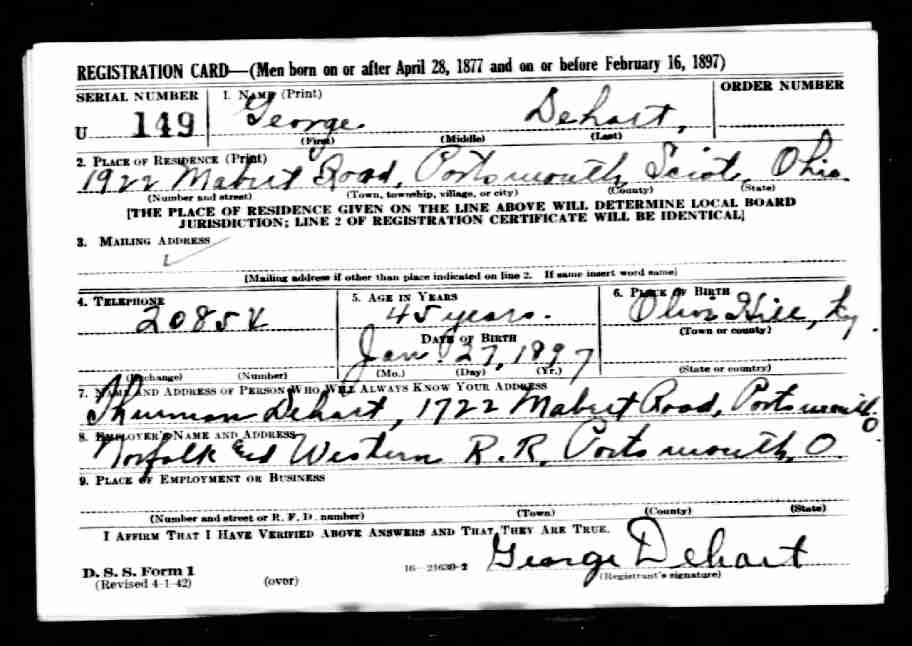 REGISTRATION CARD—(Men born on or after April 28, 1877 and on or before February 16, 1897)
SERIAL NUMBER 1. NAME (Print) ORDER NUMBER
U 149 George Dehart,
(First) (Middle) (Last)
2. PLACE OF RESIDENCE (Print)
1922 Mabert Road, Portsmouth, Scioto, Ohio.
(Number and street) (Town, township, village, or city) (County) (State)
[THE PLACE OF RESIDENCE GIVEN ON THE LINE ABOVE WILL DETERMINE LOCAL BOARD
JURISDICTION; LINE 2 OF REGISTRATION CERTIFICATE WILL BE IDENTICAL]
3. MAILING ADDRESS
(Mailing address if other than place indicated on line 2. If same insert word same)
4. TELEPHONE 5. AGE IN YEARS 6. PLACE OF BIRTH
2085 45 years. Olive Hill, Ky.
DATE OF BIRTH (Town or county)
Jan. 27, 1897
(Exchange) (Number) (Mo.) (Day) (Yr.) (State or country)
7. NAME AND ADDRESS OF PERSON WHO WILL ALWAYS KNOW YOUR ADDRESS
Thurman Dehart, 1722 Mabert Road, Portsmouth, O.
8. EMPLOYER'S NAME AND ADDRESS
Norfolk and Western R.R, Portsmouth, O.
9. PLACE OF EMPLOYMENT OR BUSINESS
(Number and street or R. F. D. number) (Town) (County) (State)
I AFFIRM THAT I HAVE VERIFIED ABOVE ANSWERS AND THAT THEY ARE TRUE.
George Dehart
D. S. S. Form 1 16—21630-2 (Registrant's signature)
(Revised 4-1-42) (over)